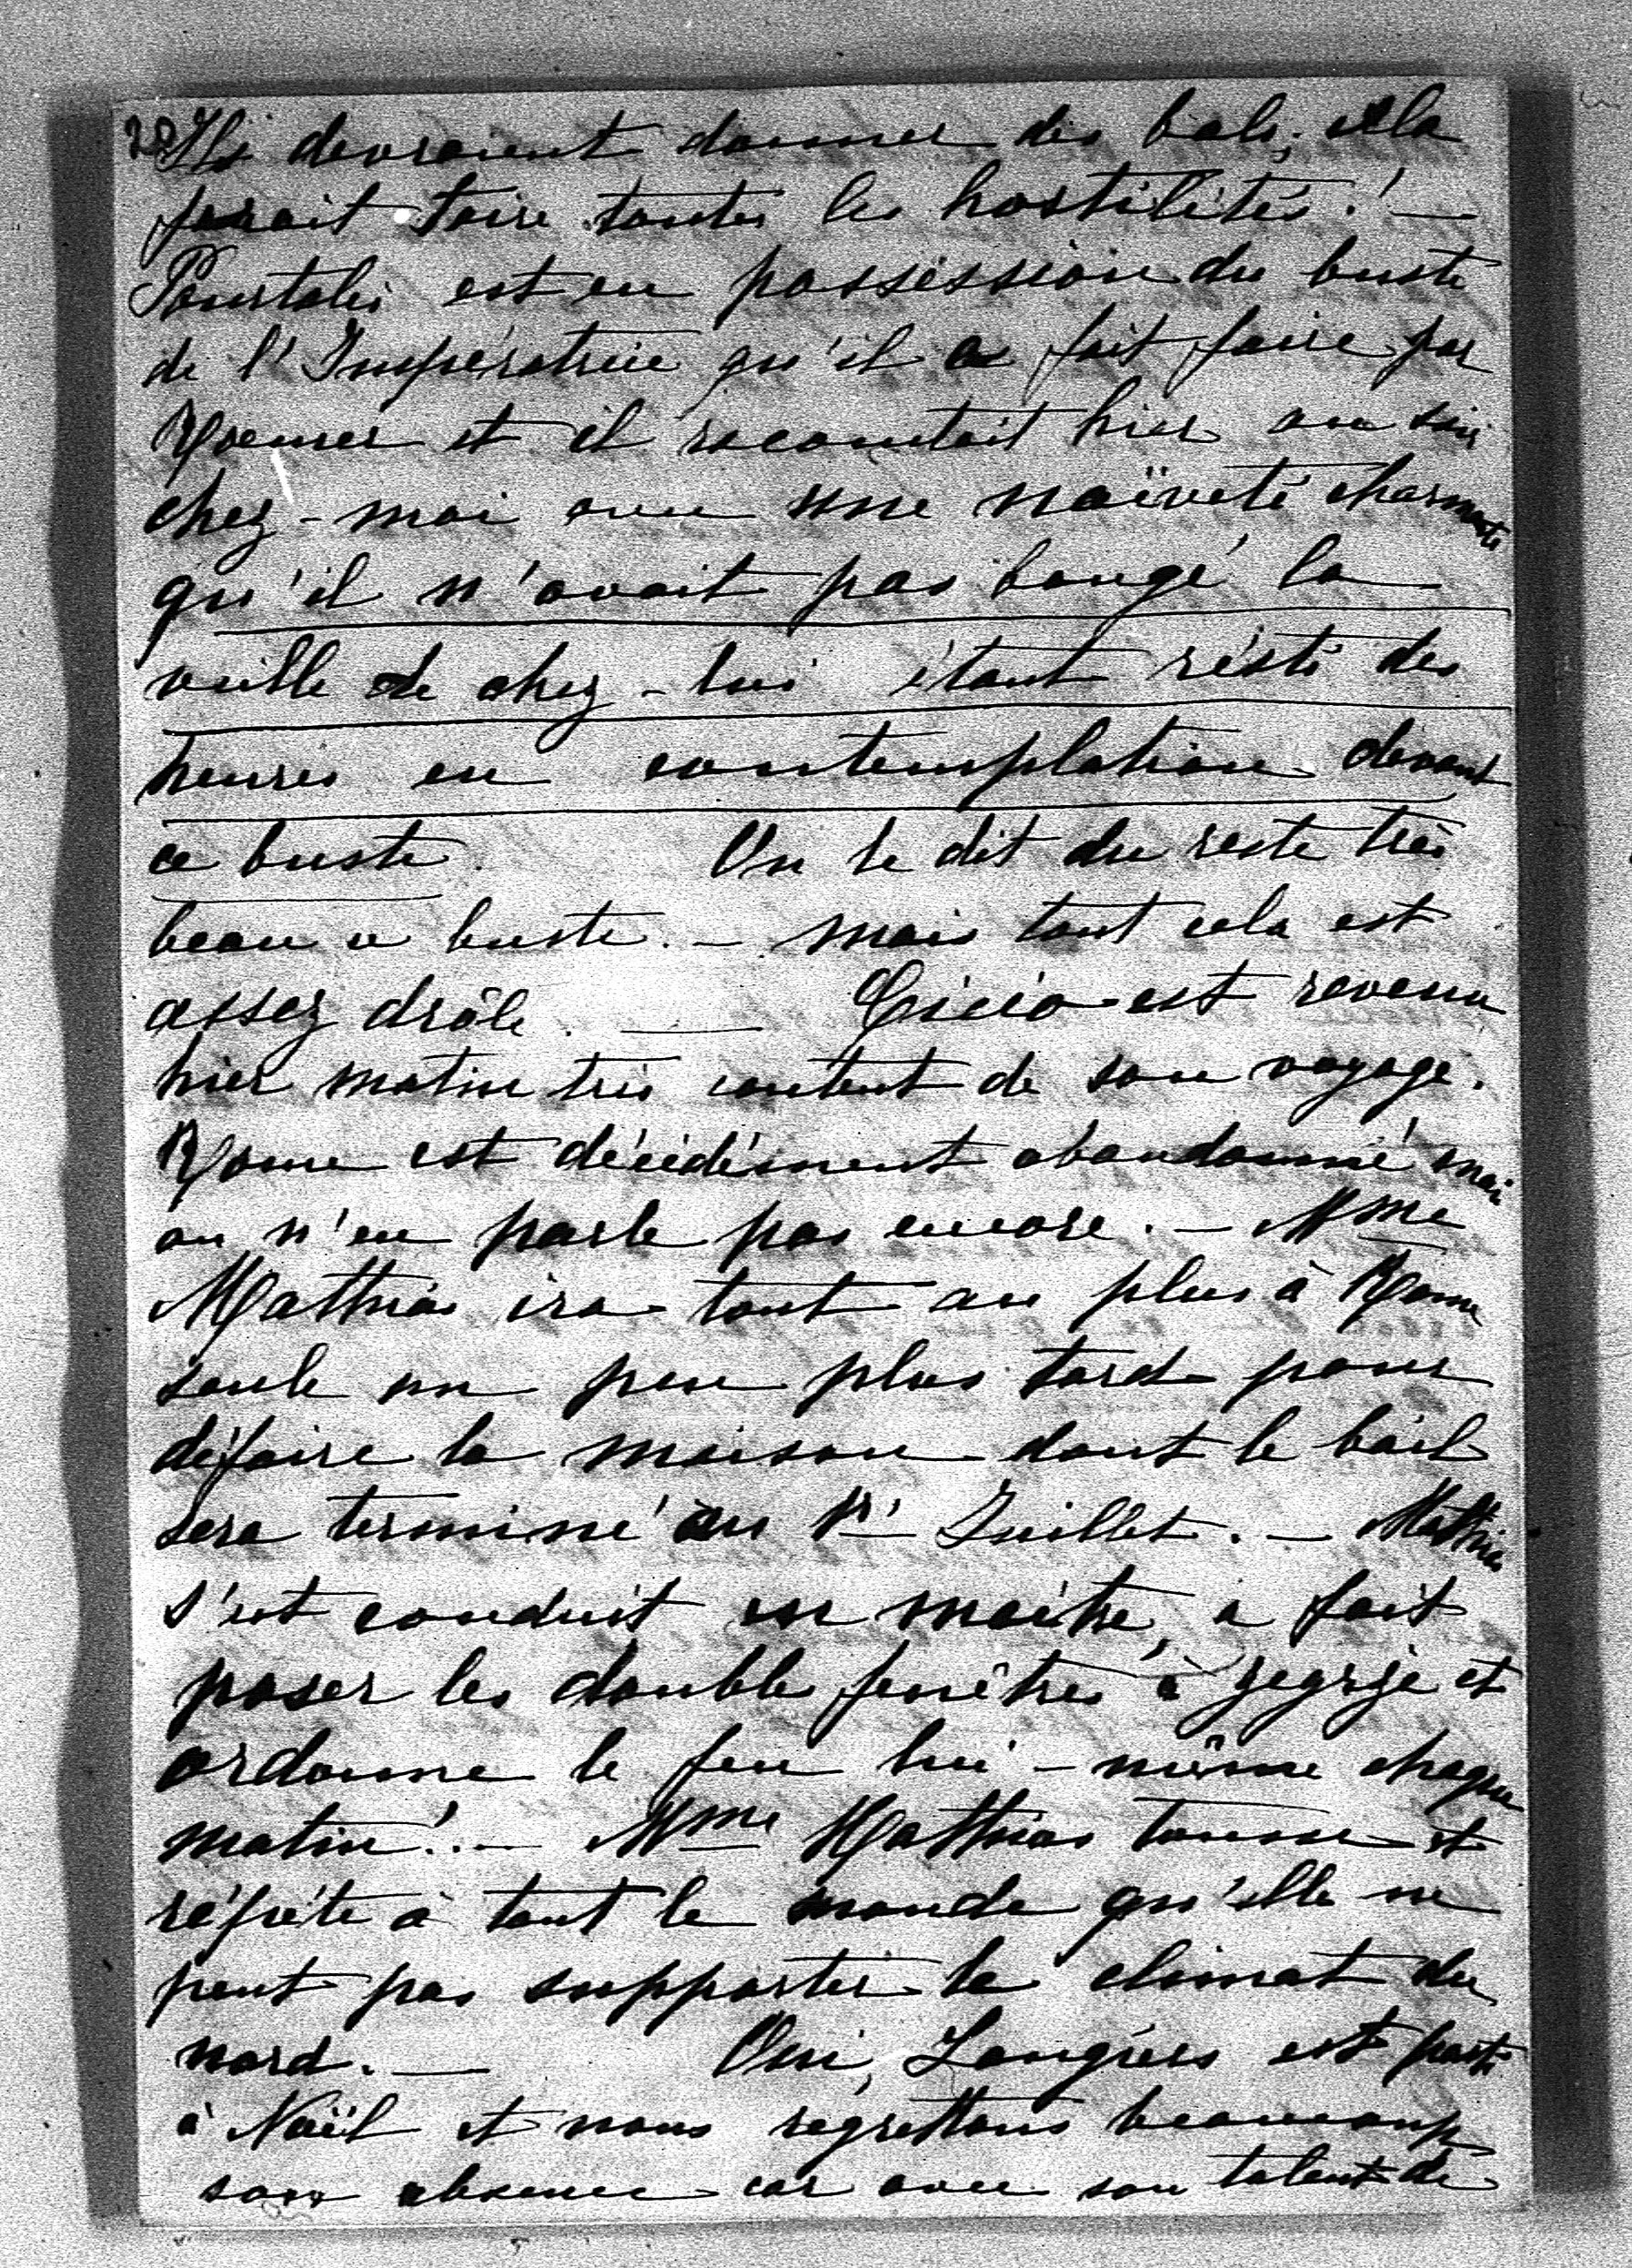 Ils devraient donner des bals; cela
ferait taire toutes les hostilités! —
Pourtalès est en possession du buste
de l'Impératrice qu'il a fait faire par
Roemer et il racontait hier au soir
chez-moi avec une naïveté charmante
qu'il n'avait pas bougé la
veille de chez-lui étant résté des
heures en contemplation devant
ce buste. On le dit du reste très
beau ce buste. — mais tout cela est
assez drôle. — Ciccio est revenu
hier matin très content de son voyage.
Rome est décidément abandonné mais
on n'en parle pas encore. — Mme
Matthias ira tout au plus à Rome
seule un peu plus tard pour
défaire la maison dont le bail
sera terminé au 1r Juillet. — Matthias
s'est conduit en maître, a fait
poser les double fenêtres à Zegrze et
ordonne le feu lui-même chaque
matin! — Mme Matthias tousse et
répéte à tout le monde qu'elle ne
peut pas supporter le climat du
nord. — Oui, est parti
à Noël et nous regrettons beaucoup
son absence car avec son talent de